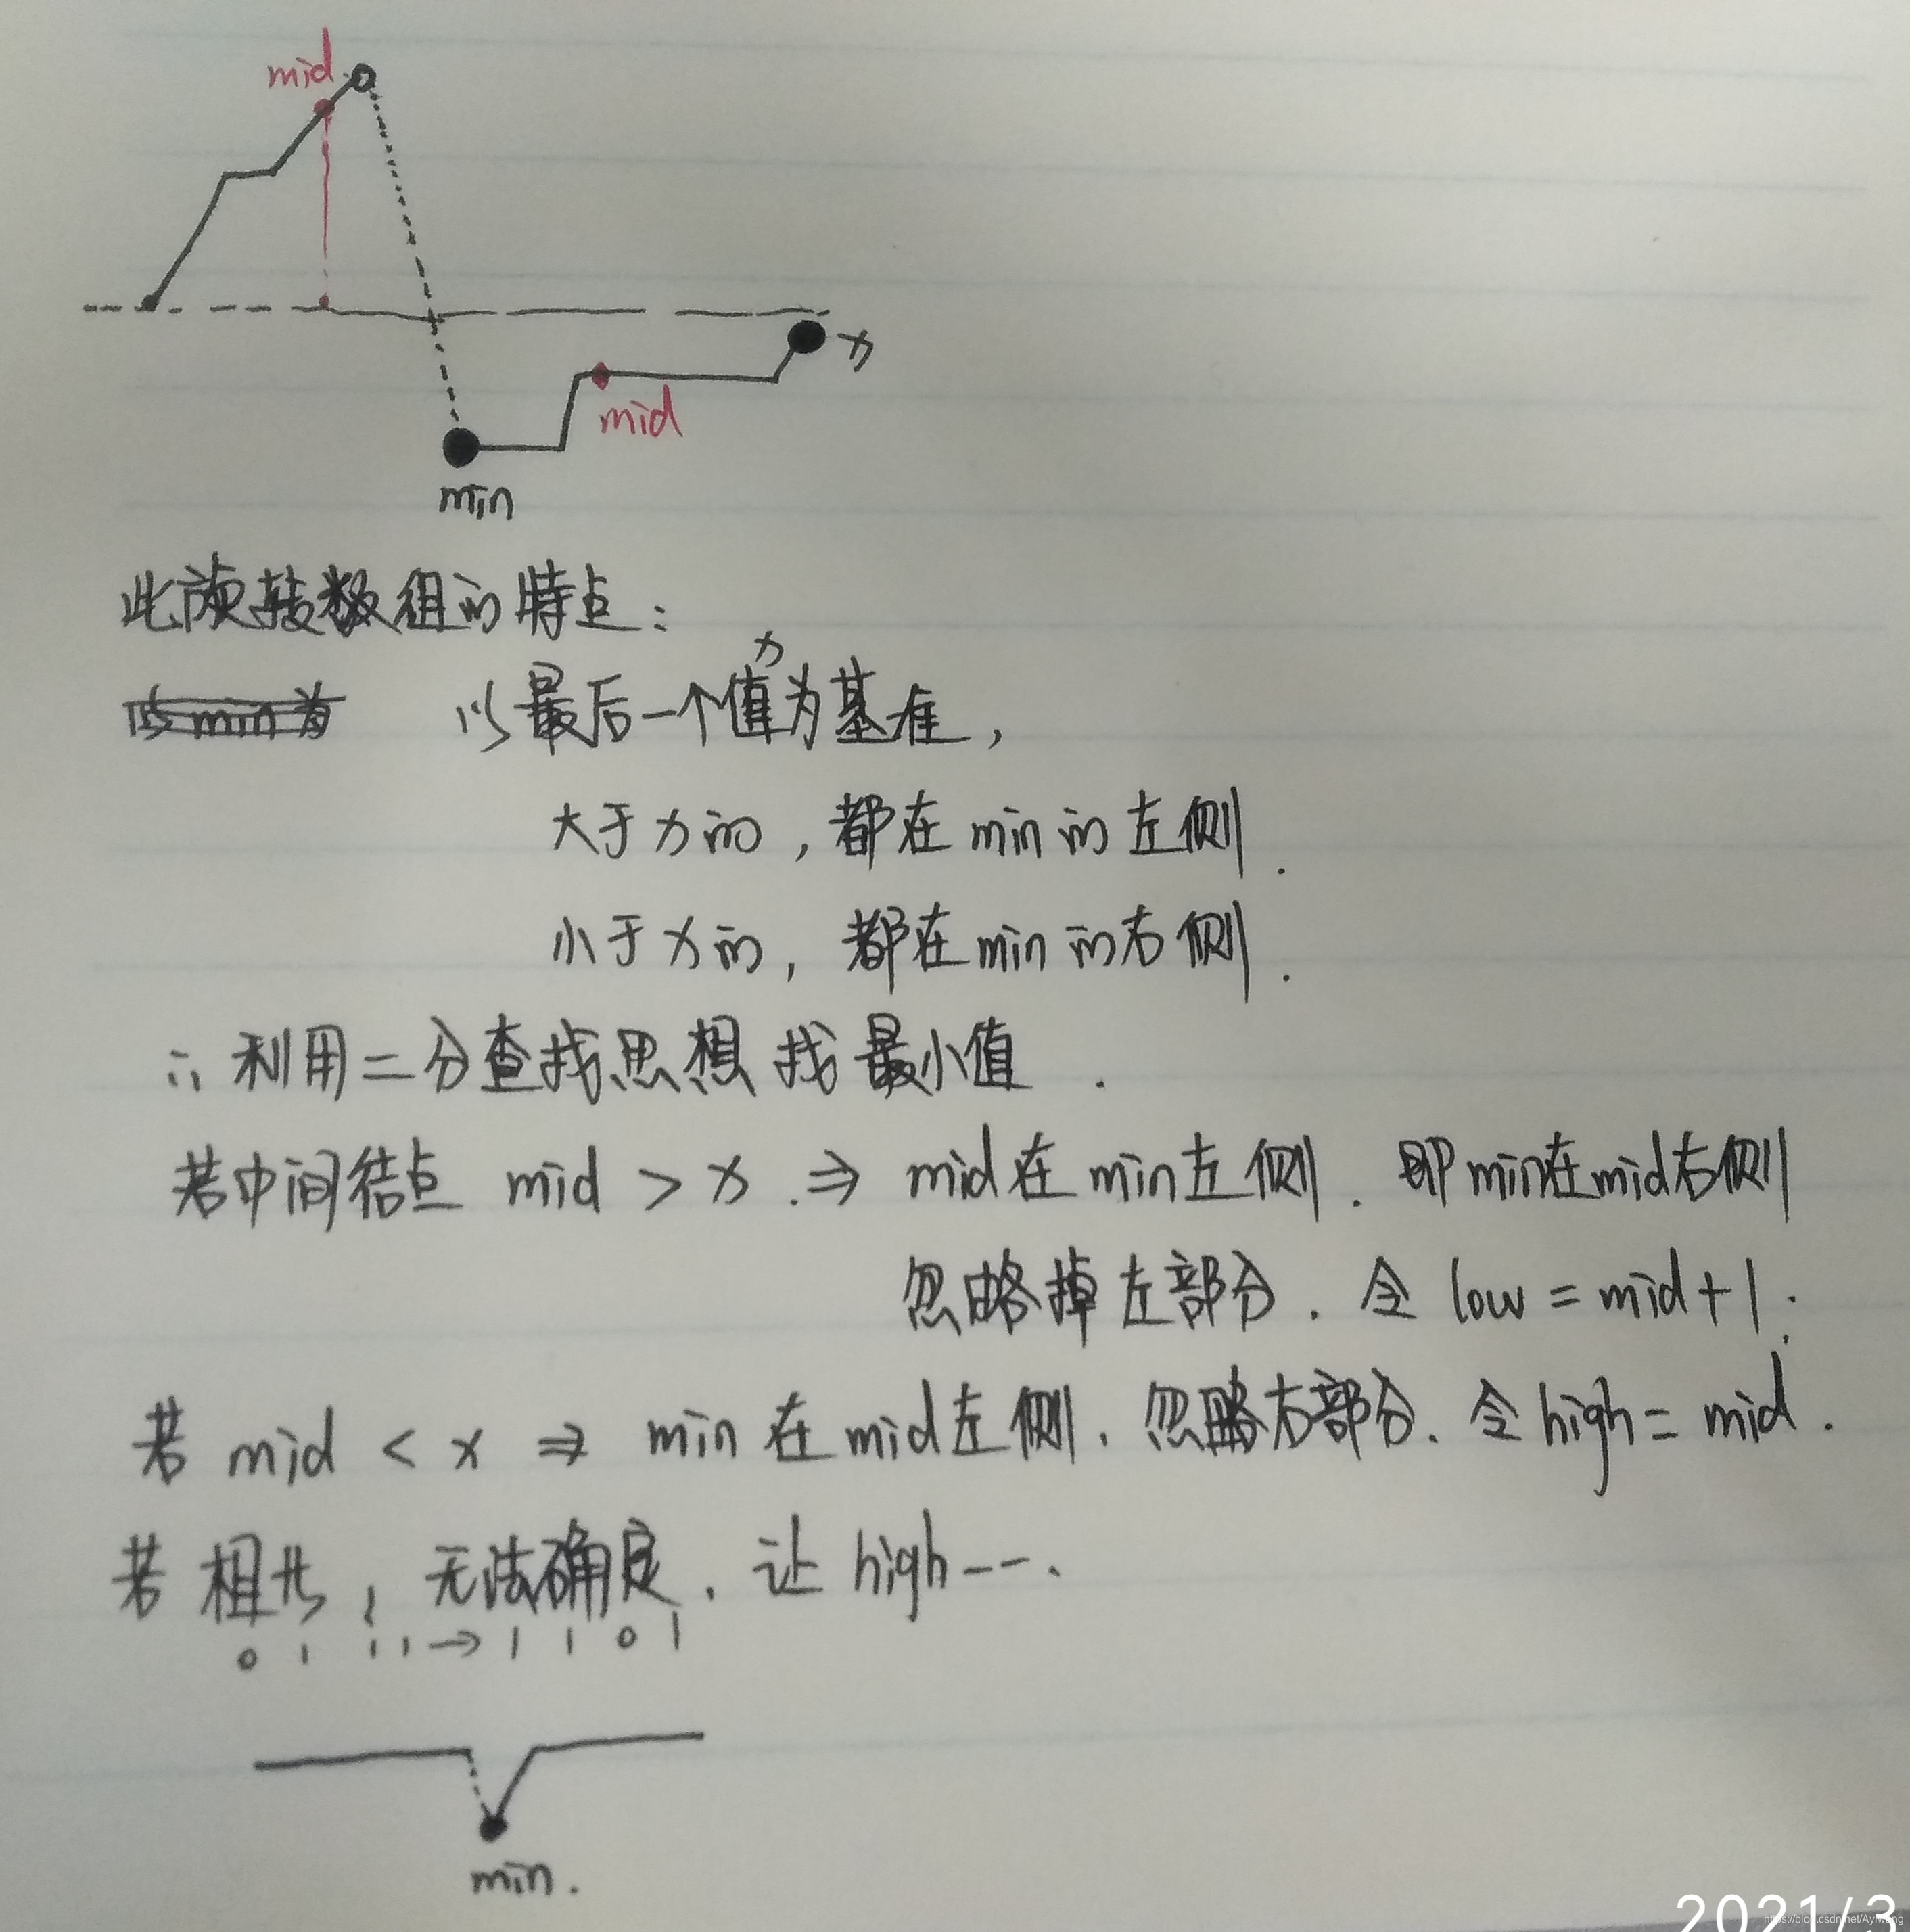 mid
x
mid
min
此旋转数组的特点：
以min为 以最后一个值x为基准，
大于x的，都在min的左侧.
小于x的，都在min的右侧.
∴ 利用二分查找思想 找最小值.
若中间结点 mid > x. ⇒ mid在min左侧. 即min在mid右侧
忽略掉左部分. 令 low = mid+1;
若 mid < x ⇒ min 在mid左侧. 忽略右部分. 令high = mid.
若 相等, 无法确定. 让 high--.
0 1 1 1 → 1 1 0 1
min.
2021/3